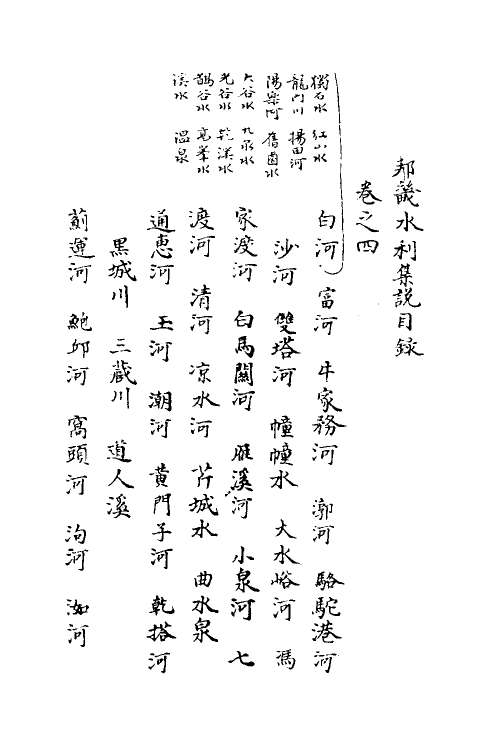 邦畿水利集説目録
卷之四
獨石水　紅山水
龍門川　揚田河
湯泉河　舊鹵水
大谷水　九泉水
光谷水　乾溪水
鵲谷水　高峯水
溪水　溫泉
白河　富河　牛家務河　漷河　駱駝港河
沙河　雙塔河　幢幢水　大水峪河　馮
家渡河　白馬關河　雁溪河　小泉河　七
渡河　清河　凉水河　芹城水　曲水泉
通惠河　玉河　潮河　黄門子河　乾搭河
黑城川　三藏川　道人溪
薊運河　鮑邱河　窩頭河　泃河　洳河